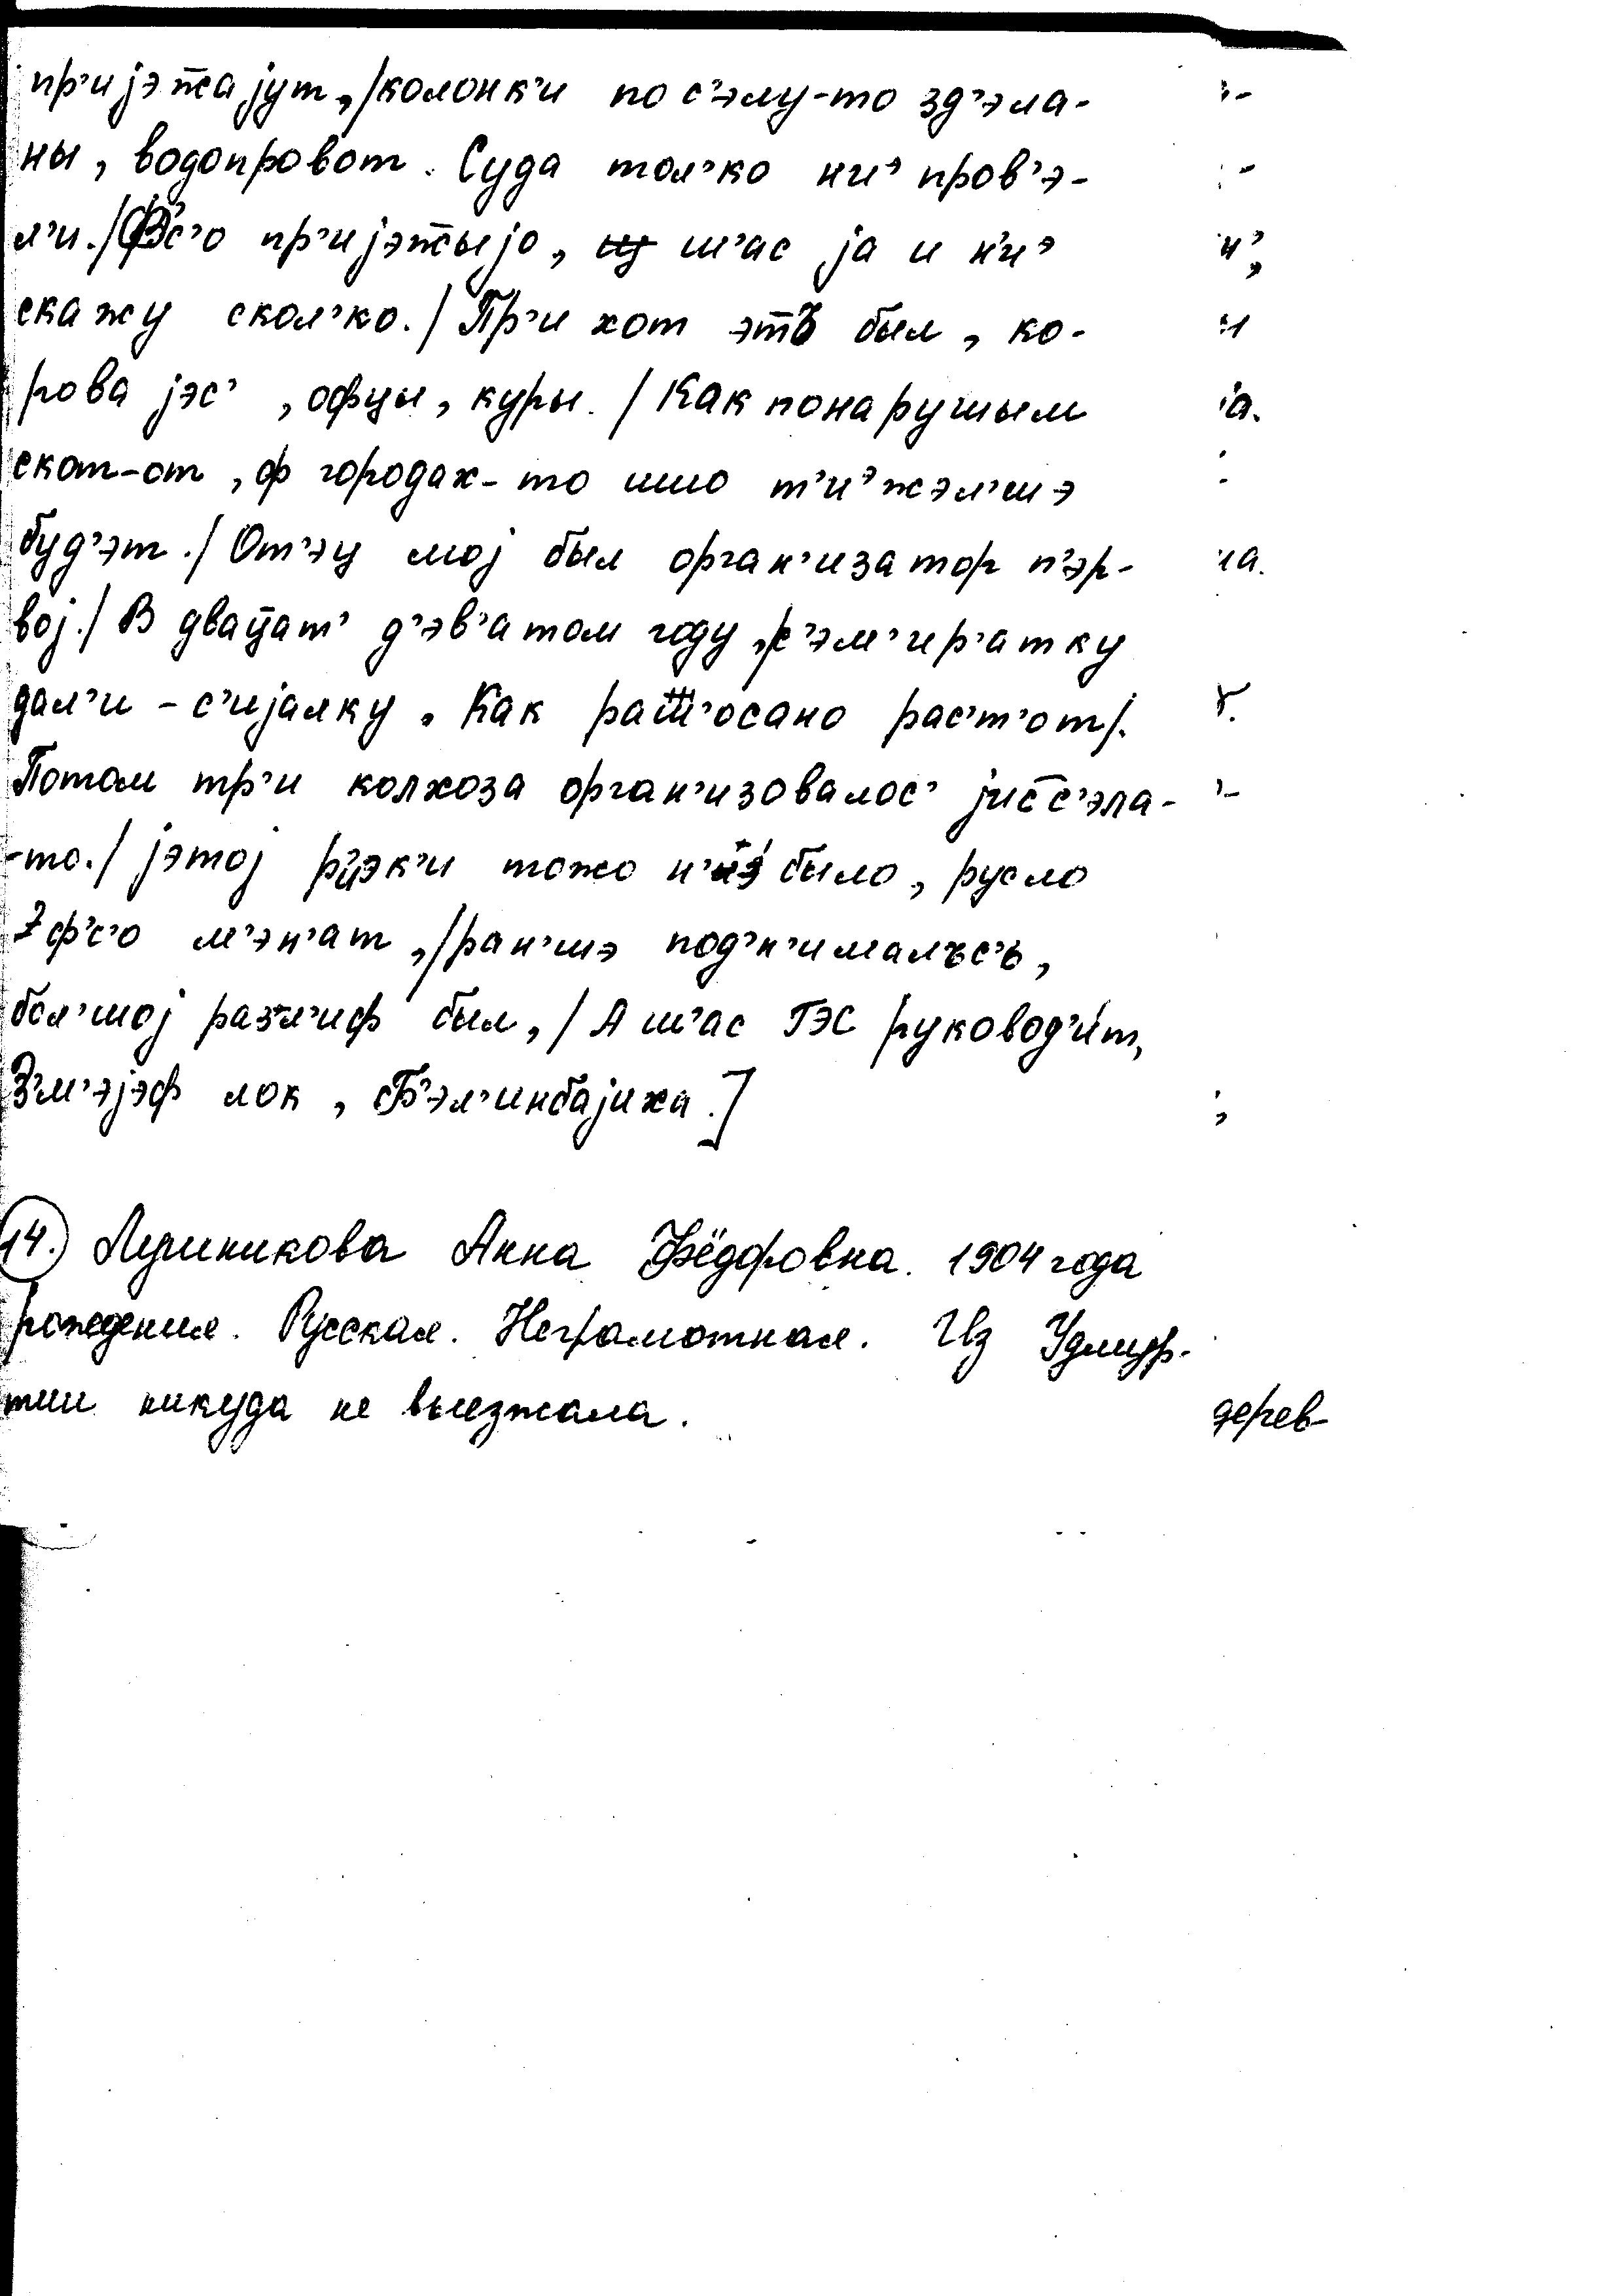 пр’иjэжжаjут,/колонк’и по с’элу-то зд’эла-
ны, водопровот. Суда тол’ко ни’э пров’э-
л’и./Ф’с’о пр’иjэжжыjо, ш’ас jа и н’и’э
скажу скол’ко./Пр’и хот этъ был, ко-
рова jэс’, офцы, куры./Как понарушым
скот-от, ф городах-то ишо т’и’эжэл’шэ
буд’эт./От’эц моj был орган’изатор п’эр-
воj./В двац̄ат’ д’эв’атом году, с’эм’ир’атку
дал’и - с’иjалку. Как рас’т’от/.
Потом тр’и колхоза орган’изовалос’ jис̄ с’эла-
-то./jэтоj р’эк’и тожо н’э было, русло
ф’с’о м’эн’ат,/ран’шэ под’н’ималъс’ъ,
бол’шоj раз’л’иф был,/А ш’ас ГЭС руковод’ит,
З’м’эjэф лок, Б’эл’инбаjиха.]
14. Анна Фёдоровна. 1904 года
рождения. Русская. Неграмотная. Из Удмур-
тии никуда не выезжала.
дерев-